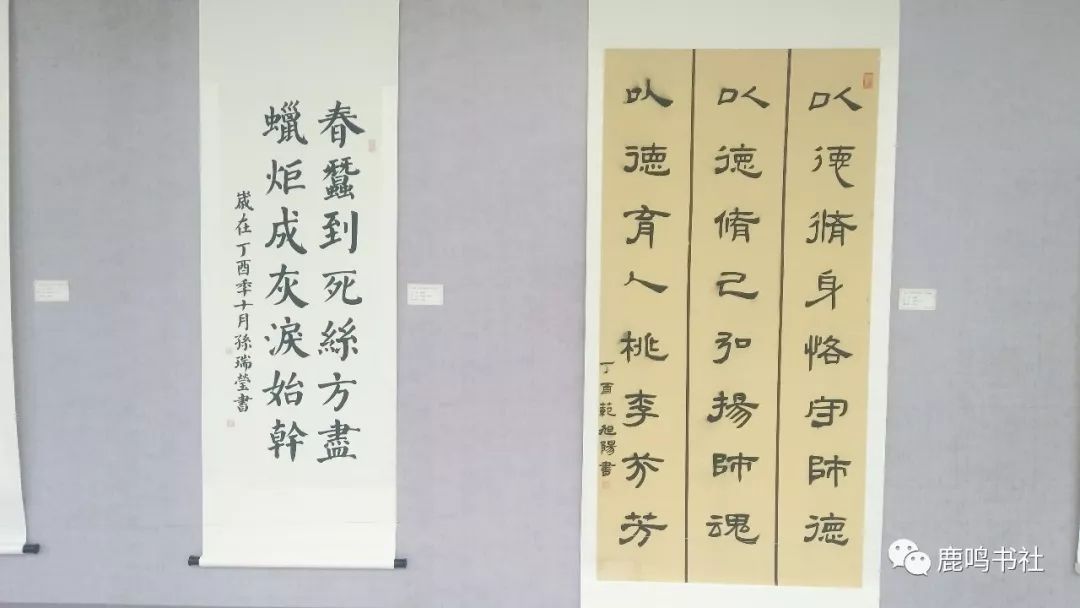 春蠶到死絲方盡
蠟炬成灰淚始幹
嵗在丁酉秊十月孫瑞瑩書
以德脩身恪守師德
以德脩己弘揚師魂
以德育人桃李芬芳
丁酉範旭陽書
鹿鸣书社